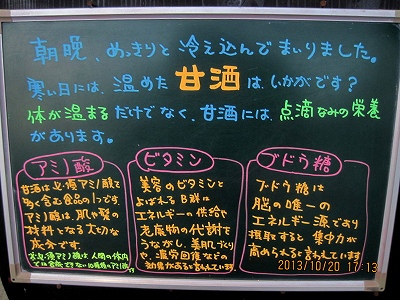 朝晩、めっきりと冷え込んでまいりました。
寒い日には、温めた甘酒は、いかがです？
体が温まるだけでなく、甘酒には、点滴なみの栄養
があります。
アミノ酸
甘酒は必須アミノ酸を
多く含む食品の1つです。
アミノ酸は、肌や髪の
材料となる大切な
成分です。
ビタミン
美容のビタミンと
よばれるB群は
エネルギーの供給や
老廃物の代謝を
うながし、美肌づくり
や、疲労回復などの
効果があると言われています。
ブドウ糖
ブドウ糖は
脳の唯一の
エネルギー源であり
摂取すると集中力が
高められると言われています
2013/10/20 17:13